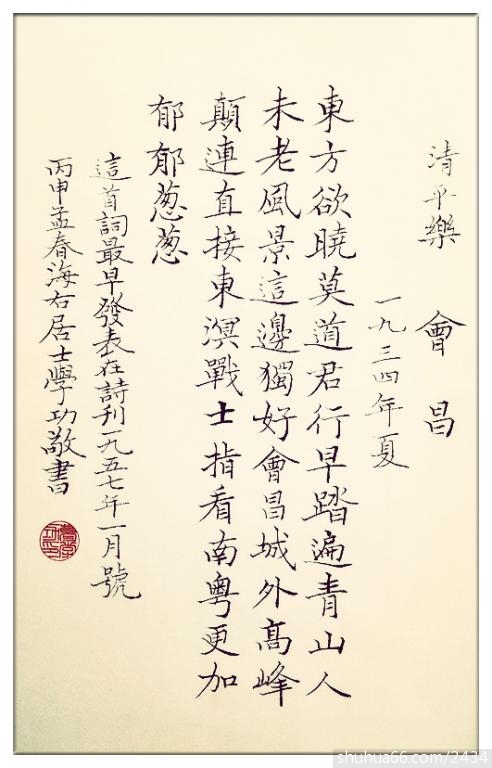 清平樂 會昌
一九三四年夏
東方欲曉莫道君行早踏遍青山人
未老風景這邊獨好會昌城外高峰
顛連直接東溟戰士指看南粤更加
郁郁葱葱
這首詞最早發表在詩刊一九五七年一月號
丙申孟春海右居士學功敬書
shuhua66.com/2434